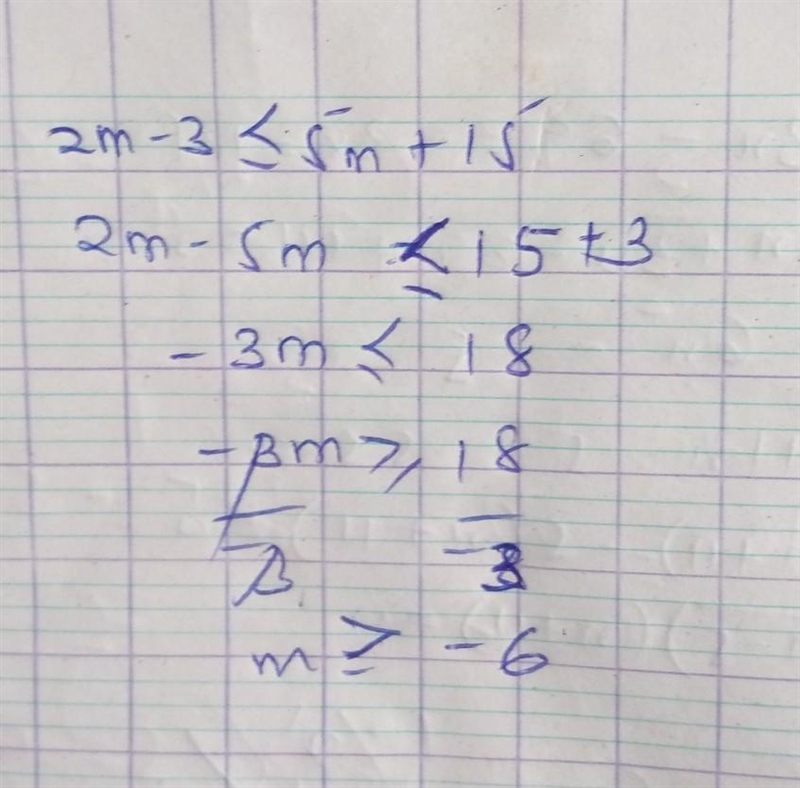 2m - 3 ≤ 5m + 15
2m - 5m ≤ 15 + 3
- 3m ≤ 18
- 3m ≥ 18
- 3 - 3
m ≥ - 6